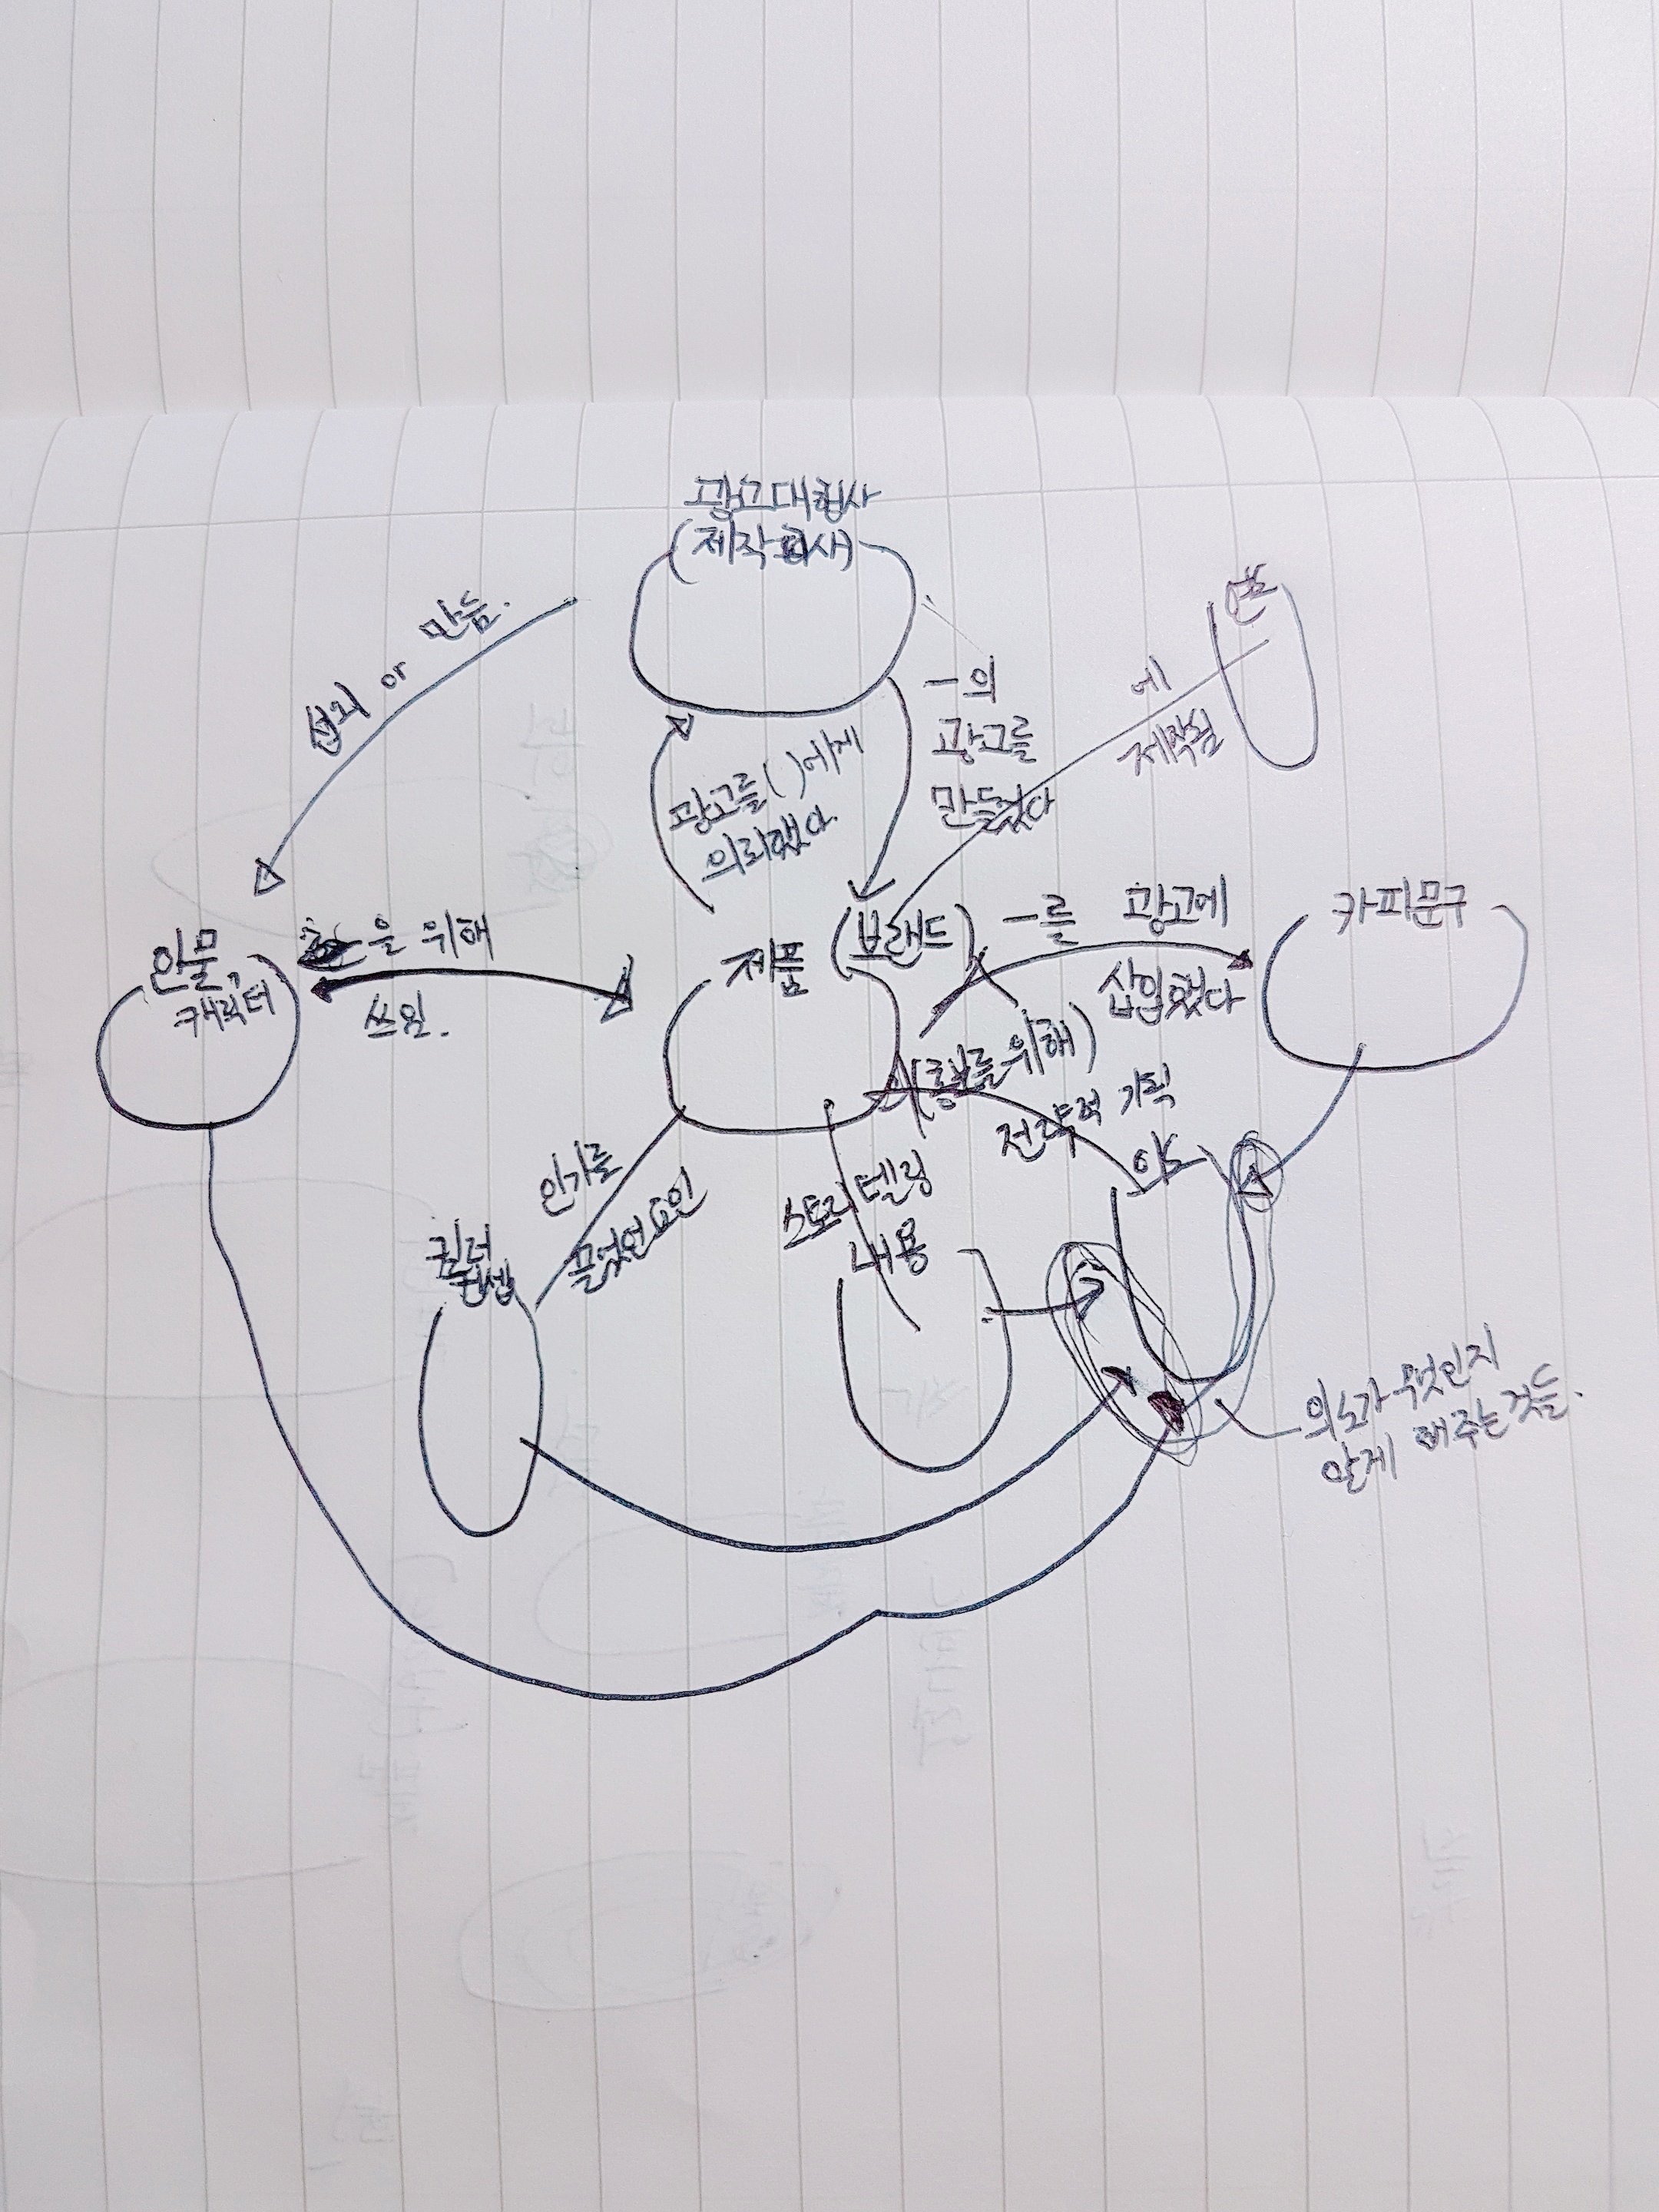 광고대행사
(제작회사)
선외 or 만듬.
년도
에
제작됨
ㅡ의
광고를
만들었다
광고를( )에게
의뢰했다.
인물,
캐릭터
을 위해
쓰임.
제품
(브랜드)
ㅡ를 광고에
삽입했다
카피문구
(홍보를 위해)
전략적 기획
의도
인기를
끌었던 요인
킬러
컨셉
스토리텔링
내용
의도가 무엇인지
알게 해주는 것들.